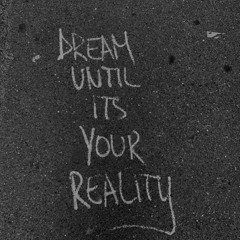 DREAM
UNTIL
ITS
YOUR
REALITY